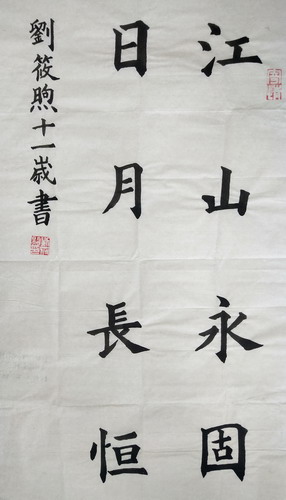 江山永固
日月長恒
劉筱煦十一歲書